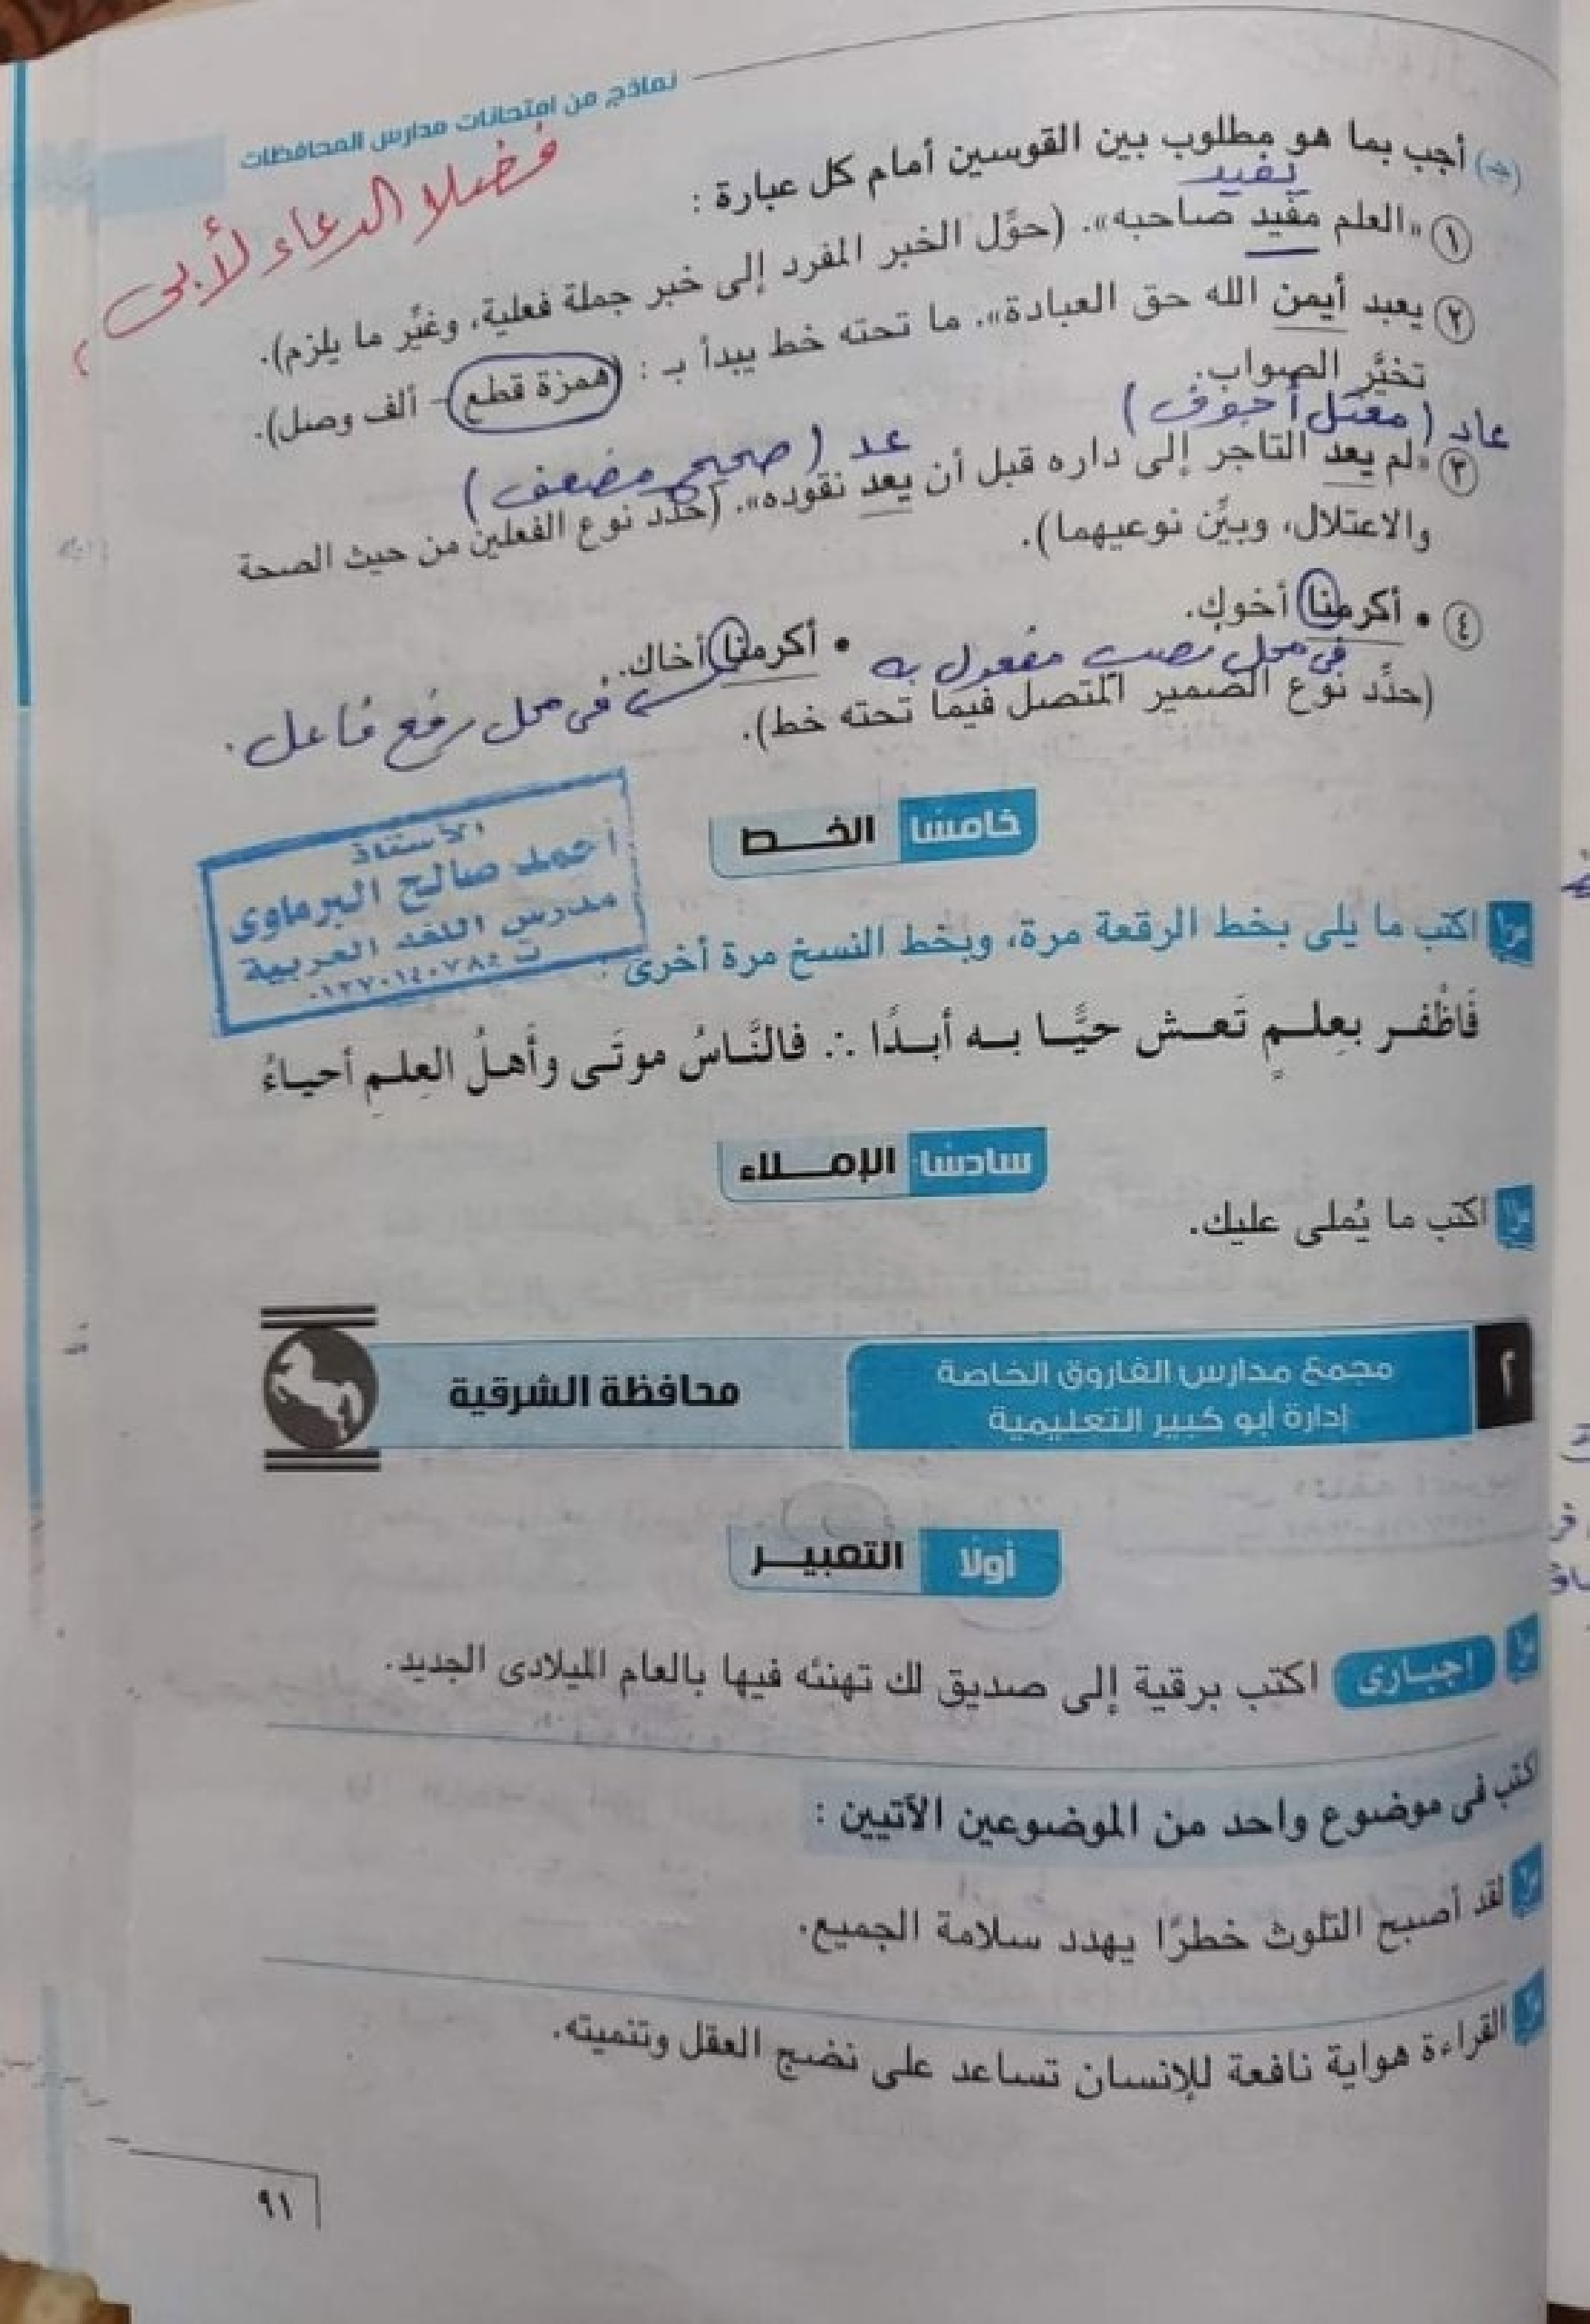 نماذج من امتحانات مدارس المحافظات
فضلا الدعاء لأبى
(جـ) أجب بما هو مطلوب بين القوسين أمام كل عبارة :
يفيد
١ «العلم مفيد صاحبه». (حوِّل الخبر المفرد إلى خبر جملة فعلية، وغيِّر ما يلزم).
٢ يعبد أيمن الله حق العبادة». ما تحته خط يبدأ بـ : (همزة قطع - ألف وصل).
تخيَّر الصواب.
عاد (معتل أجوف)
عد (صحيح مضعف)
٣ «لم يعد التاجر إلى داره قبل أن يعد نقوده». (حدِّد نوع الفعلين من حيث الصحة
والاعتلال، وبيِّن نوعيهما).
٤ • أكرمنا أخوك. • أكرمنا أخاك.
فى محل نصب مفعول به
فى محل رفع فاعل.
(حدِّد نوع الضمير المتصل فيما تحته خط).
الأستاذ
أحمد صالح البرماوى
مدرس اللغة العربية
خامسًا الخـــط
اكتب ما يلى بخط الرقعة مرة، وبخط النسخ مرة أخرى :
فَاظْفـر بعِلـمٍ تَعـش حيًّـا بـه أبـدًا ∴ فالنَّـاسُ موتَـى وأَهـلُ العِلـمِ أحيـاءُ
سادسًا الإمـــلاء
اكتب ما يُملى عليك.
٢ مجمع مدارس الفاروق الخاصة
إدارة أبو كبير التعليمية
محافظة الشرقية
أولًا التعبيـــر
إجبارى اكتب برقية إلى صديق لك تهنئه فيها بالعام الميلادى الجديد.
اكتب فى موضوع واحد من الموضوعين الآتيين :
لقد أصبح التلوث خطرًا يهدد سلامة الجميع.
القراءة هواية نافعة للإنسان تساعد على نضج العقل وتنميته.
٩١